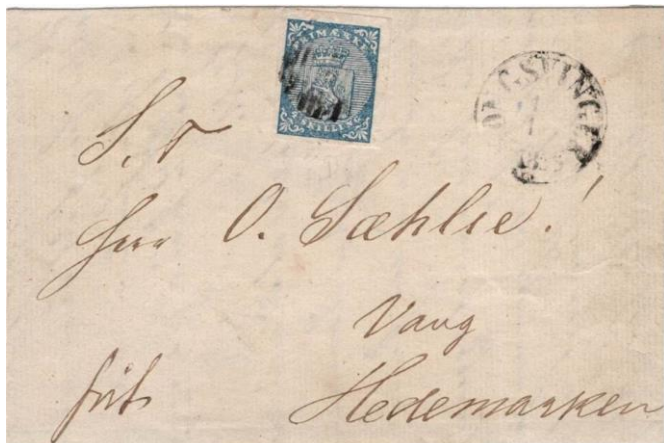 FRIMÆRKE
4 SKILLING
KONGSVINGER
S. T
Herr O. Sæhlie!
Vang
frit. Hedemarken